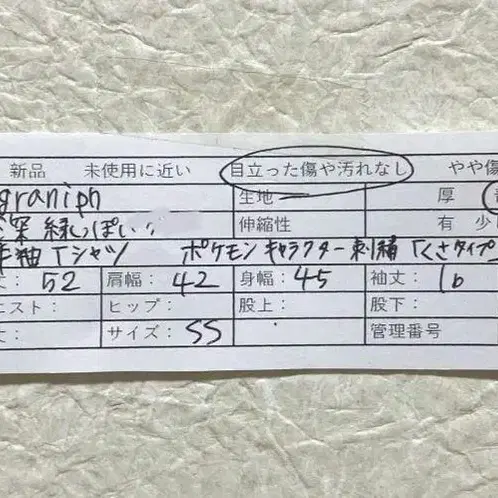 新品 未使用に近い 目立った傷や汚れなし やや傷
graniph 生地 厚
深緑っぽい 伸縮性 有 少し
半袖Tシャツ ポケモンキャラクター刺繍「くさタイプ」
丈: 52 肩幅: 42 身幅: 45 袖丈: 16
エスト: ヒップ: 股上: 股下:
丈: サイズ: SS 管理番号